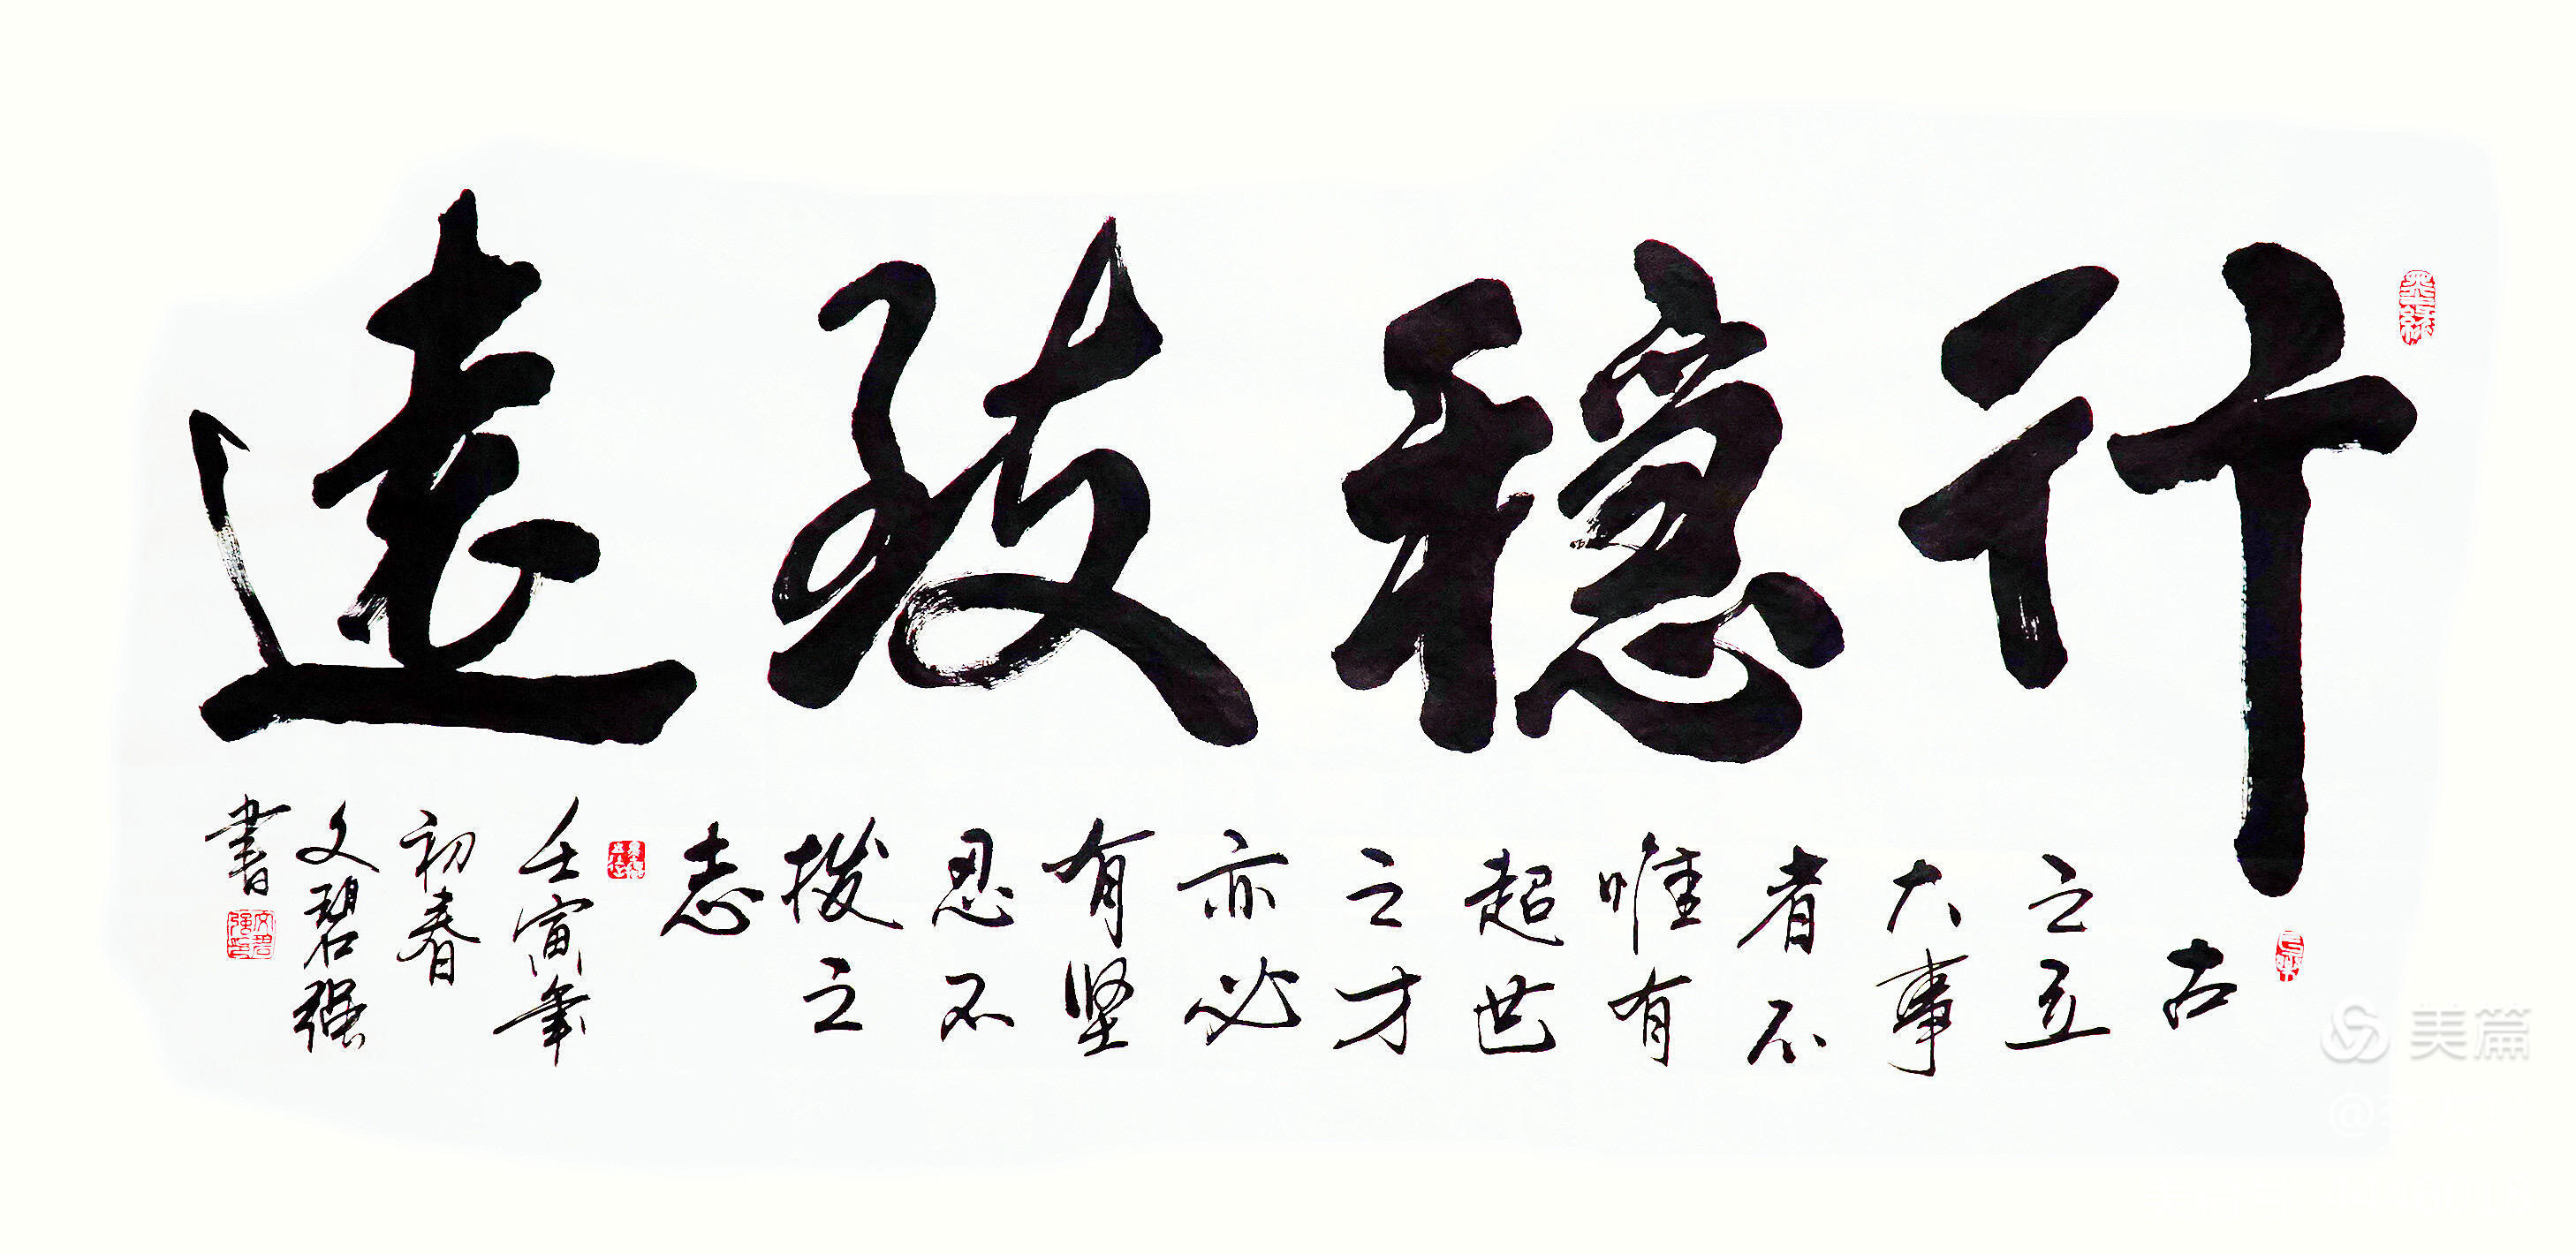 行稳致遠
古
之立
大事
者不
唯有
超世
之才
亦必
有坚
忍不
拨之
志
壬寅年
初春
文碧强
書
文碧强印
美篇